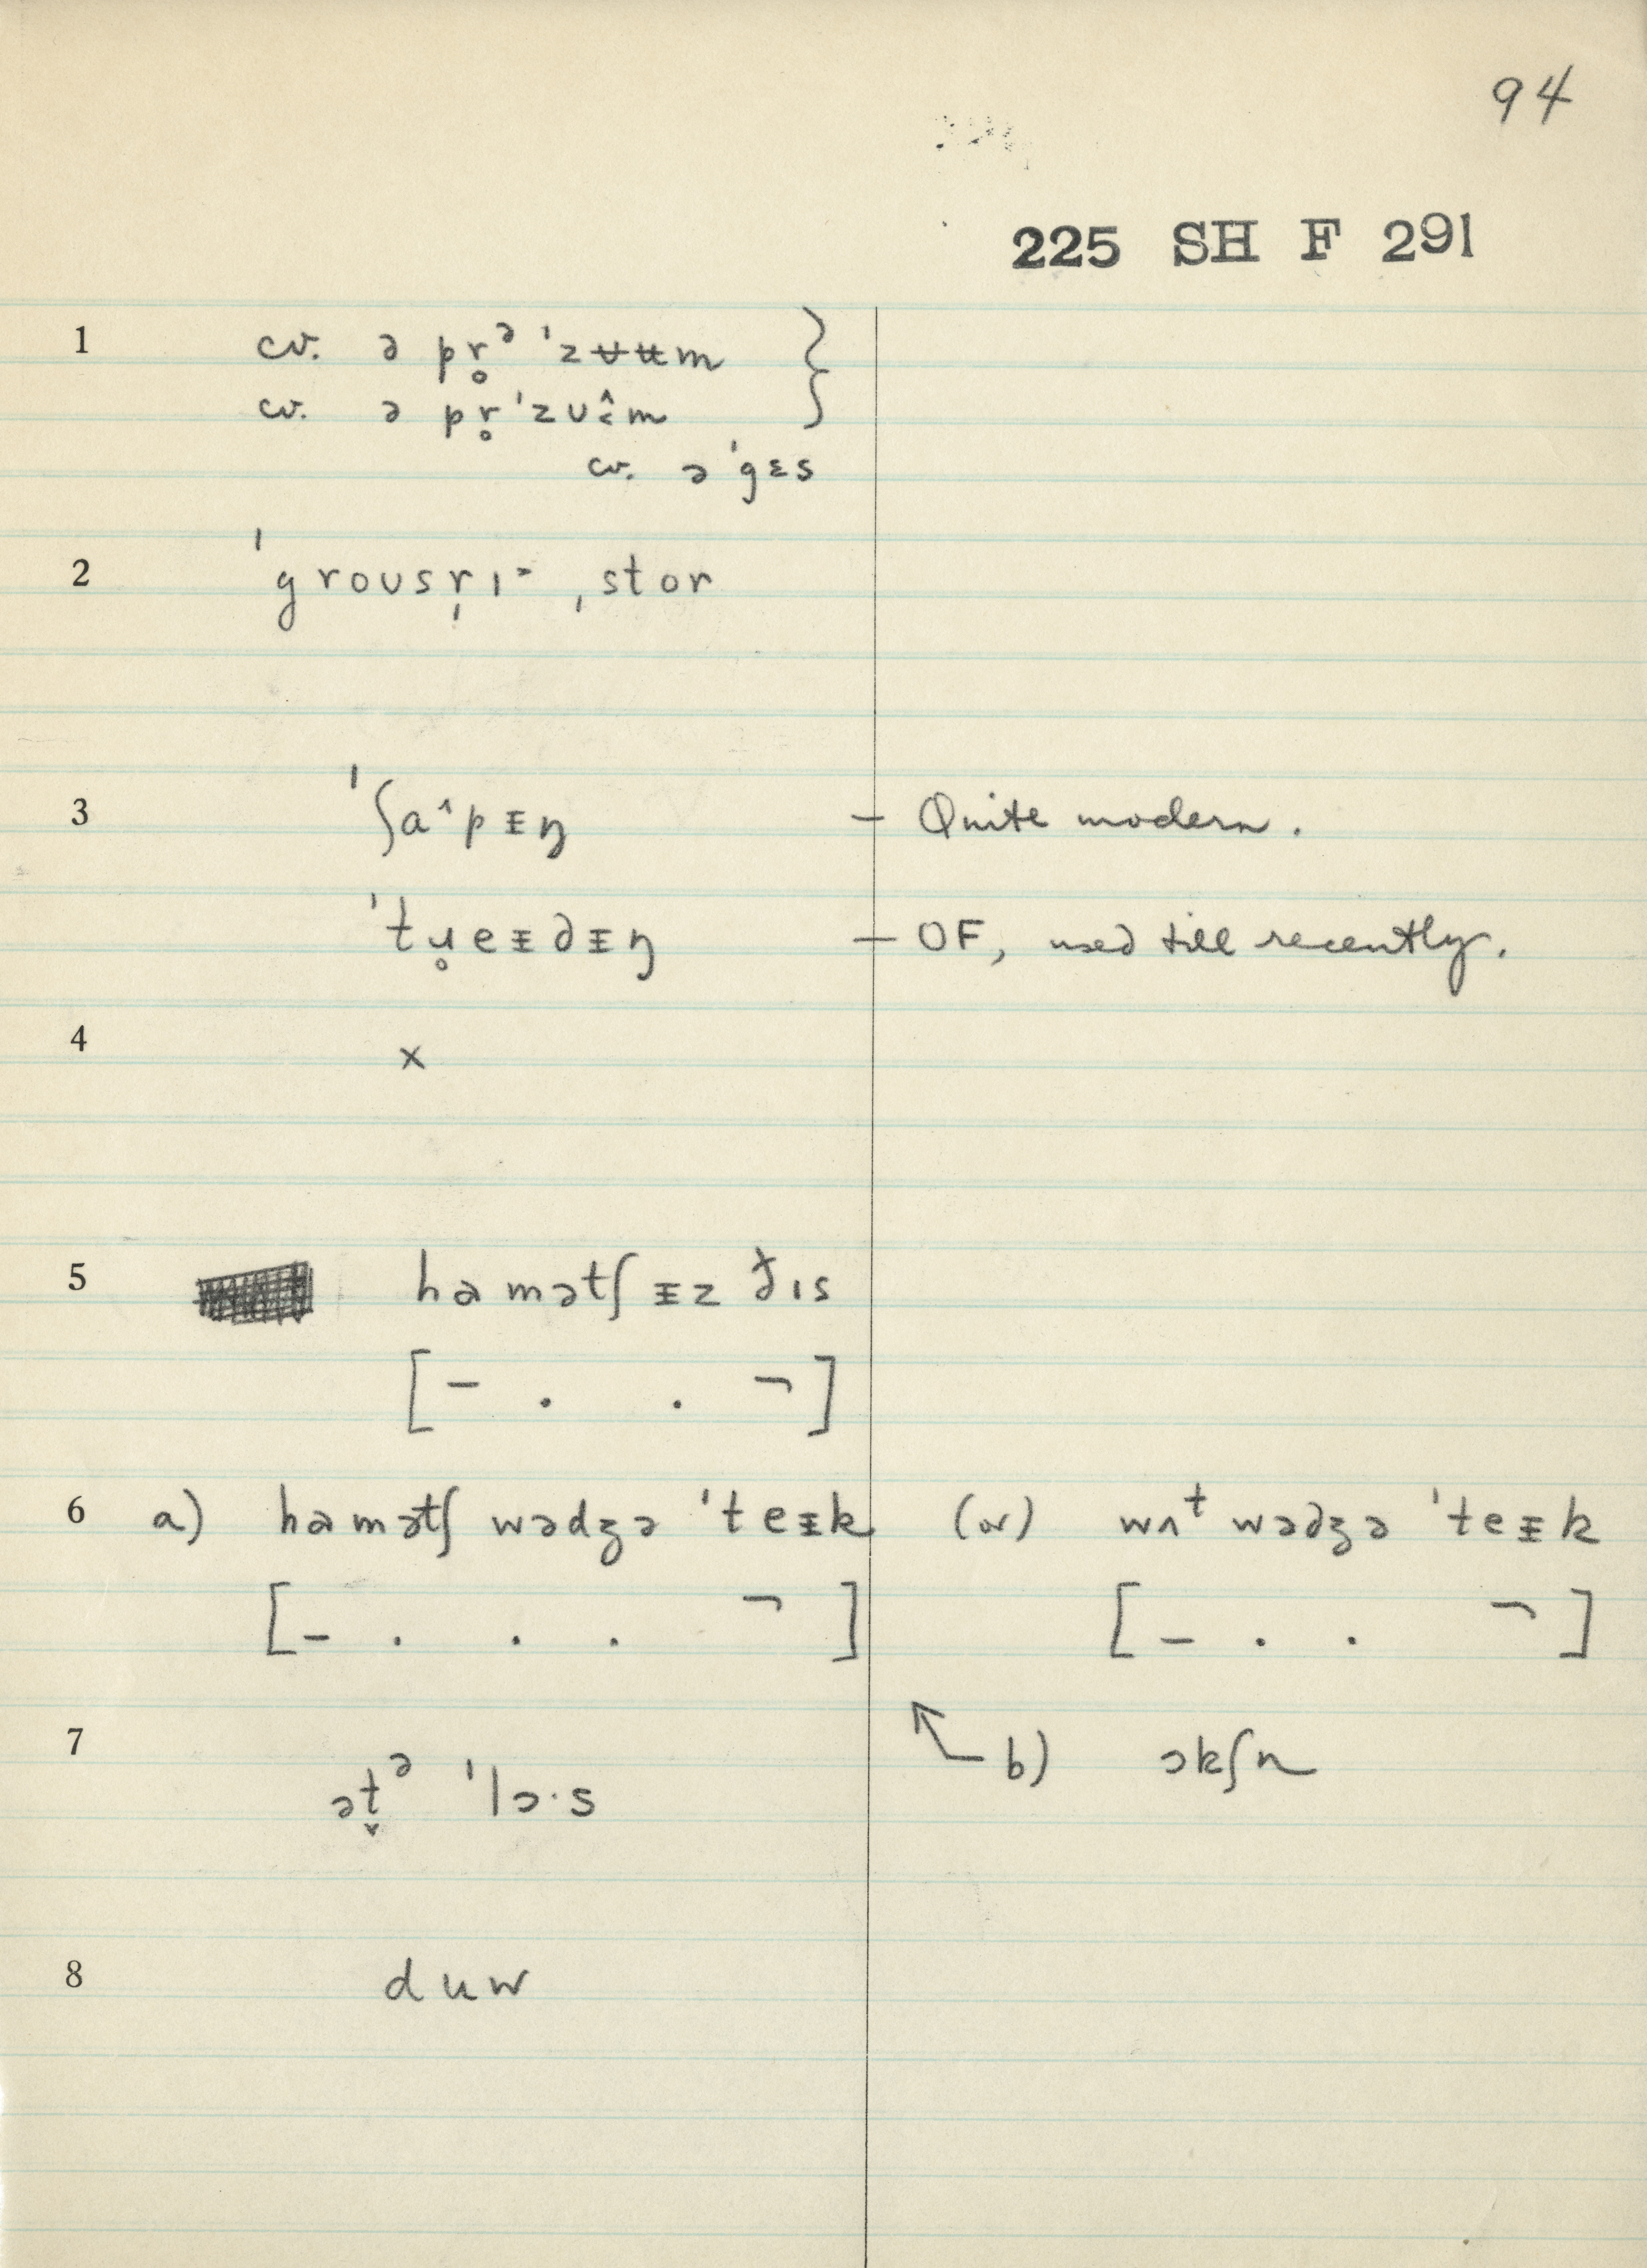 94
225 SH F 291
1 cv. ə pr̥ᵊ ˈzʉʉm }
cv. ə pr̥ˈzᴜ m
cv. əˈgɛs
2 ˈgroᴜsr̩ɪ ˌstor
3 ˈʃɑ^pᵻŋ – Quite modern.
ˈtɹ̥eᵻdᵻŋ – OF, used till recently.
4 x
5 həmətʃᵻz ðɪs
[– . . ¬]
6 a) həmətʃ wədʒə ˈteᵻk (or) wʌᵗ wədʒə ˈteᵻk
[– . . . ¬] [– . . ¬]
7 ət̬ᵊ ˈlɔ·s b) ɔkʃn
8 duw